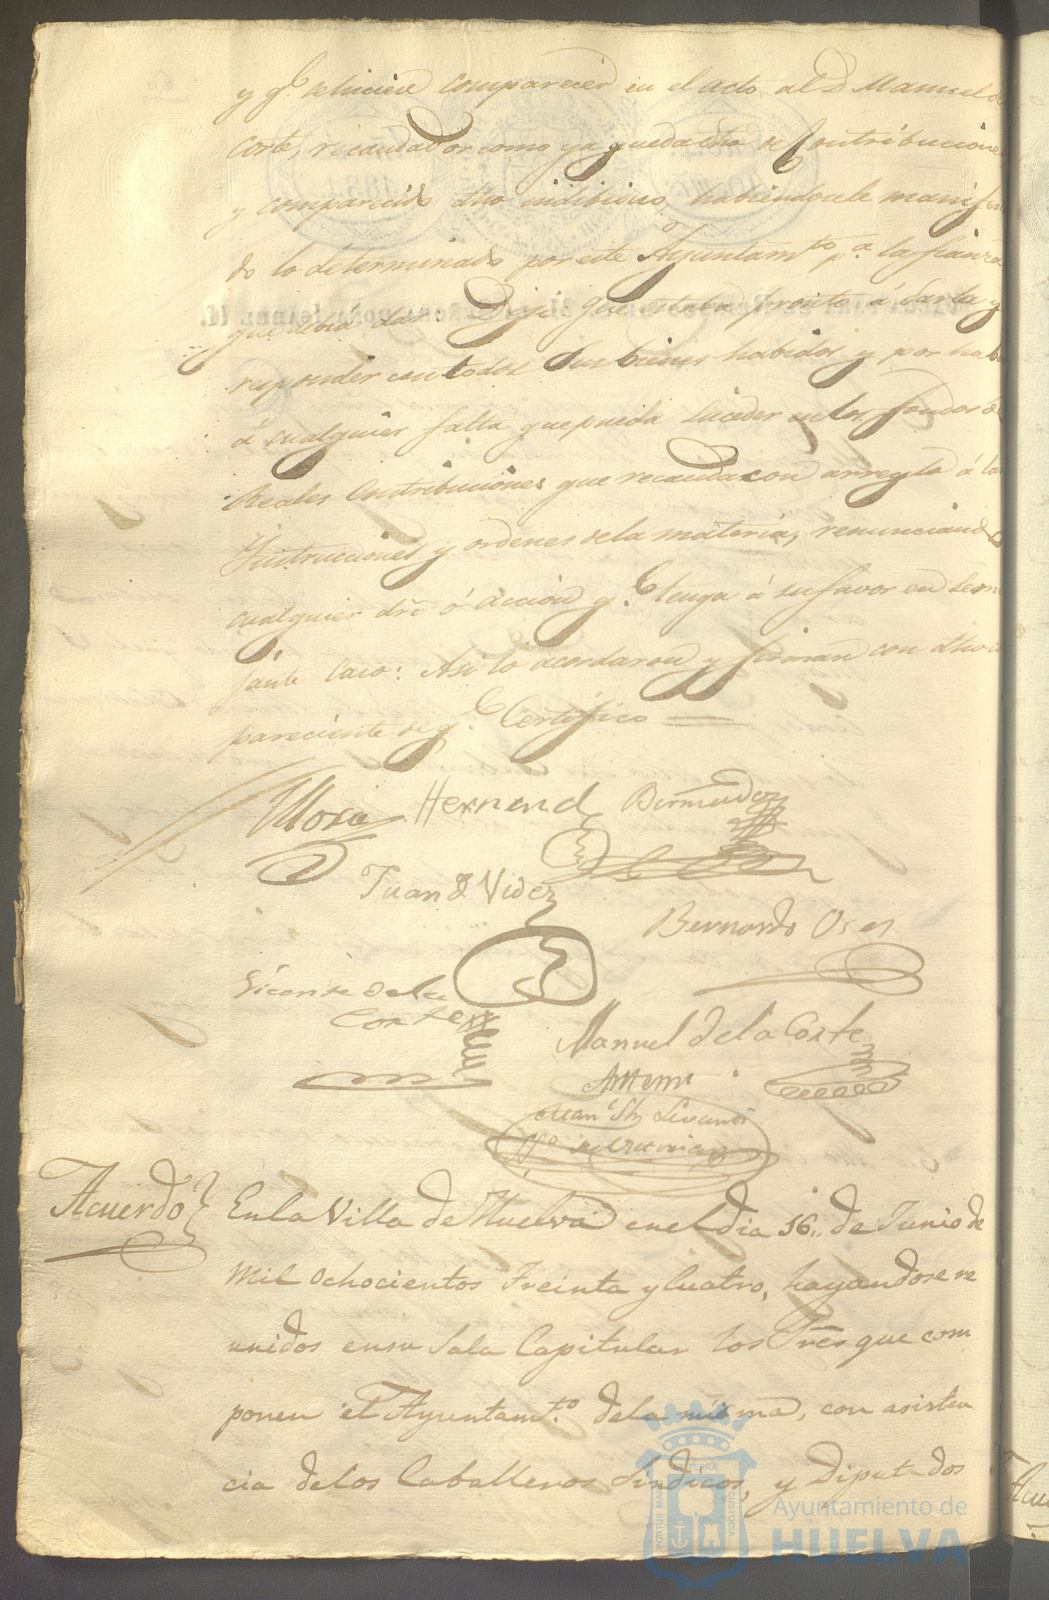 y q.e se hiciere comparecer en el acto al D. Manuel de
Corte, recaudador como ya queda dho de Contribucione
y comparecido dho indibiduo, habiendosele manifes
do lo determinado por este Ayuntam.to p.a la fianza
que debia dar Dijo que estaba pronto á darla y
responder con todos sus bienes habidos y por habe
á cualquier falta que pueda suceder en los fondos de
Reales Contribuciones que recauda con arreglo á las
Instrucciones y ordenes de la materia, renunciando
cualquier dro ó accion q.e tenga á su favor en seme
jante caso: Asi lo acordaron y firman con dho co
pareciente de q.e Certifico
Ulloa Hernand Bermudez
Juan d Videz
Bernardo Oses
Vicente de la
Corte
Manuel de la Corte
Antemi
Acuerdo
En la Villa de Huelva en el dia 16,, de Junio de
Mil ochocientos Treinta y Cuatro, hayandose re
unidos en su Sala Capitular los Sres que com
ponen el Ayuntam.to de la misma, con asisten
cia de los Caballeros Sindicos, y Diputados
PORTUS MARIS
TERRAE
CUSTODIA
Ayuntamiento de
HUELVA